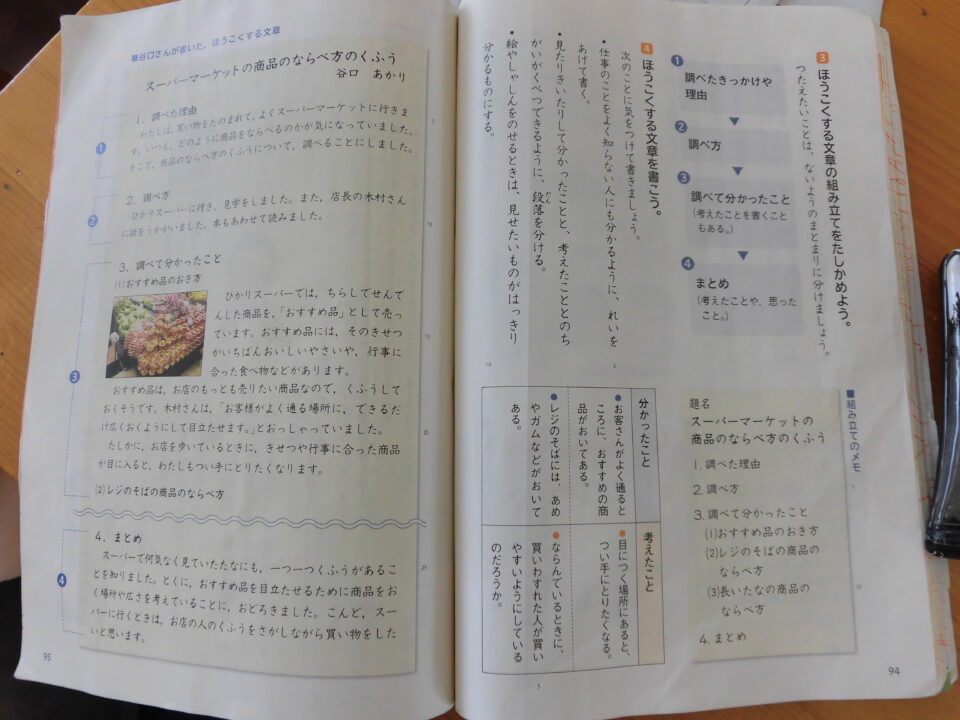 3 ほうこくする文章の組み立てをたしかめよう。
つたえたいことは、ないようのまとまりに分けましょう。
1 調べたきっかけや
理由
2 調べ方
3 調べて分かったこと
(考えたことを書くこと
もある。)
4 まとめ
(考えたことや、思った
こと。)
4 ほうこくする文章を書こう。
次のことに気をつけて書きましょう。
・仕事のことをよく知らない人にも分かるように、れいを
あげて書く。
・見たりきいたりして分かったことと、考えたこととのち
がいがくべつできるように、段落を分ける。
だん
・絵やしゃしんをのせるときは、見せたいものがはっきり
分かるものにする。
5
10
■組み立てのメモ
題名
スーパーマーケットの
商品のならべ方のくふう
1. 調べた理由
2. 調べ方
3. 調べて分かったこと
(1)おすすめ品のおき方
(2)レジのそばの商品の
ならべ方
(3)長いたなの商品の
ならべ方
4. まとめ
5
10
分かったこと
●お客さんがよく通ると
ころに、おすすめの商
品がおいてある。
●レジのそばには、あめ
やガムなどがおいて
ある。
考えたこと
●目につく場所にあると、
つい手にとりたくなる。
●ならんでいるときに、
買いわすれた人が買い
やすいようにしている
のだろうか。
5
94
■谷口さんが書いた、ほうこくする文章
スーパーマーケットの商品のならべ方のくふう
谷口 あかり
1
1. 調べた理由
わたしは、買い物をたのまれて、よくスーパーマーケットに行きま
す。いつも、どのように商品をならべるのかが気になっていました。
そこで、商品のならべ方のくふうについて、調べることにしました。
5
2
2. 調べ方
ひかりスーパーに行き、見学をしました。また、店長の木村さん
に話をうかがいました。本もあわせて読みました。
10
3
3. 調べて分かったこと
(1)おすすめ品のおき方
ひかりスーパーでは、ちらしでせんで
んした商品を、「おすすめ品」として売っ
ています。おすすめ品には、そのきせつ
がいちばんおいしいやさいや、行事に
合った食べ物などがあります。
15
おすすめ品は、お店のもっとも売りたい商品なので、くふうして
おくそうです。木村さんは、「お客様がよく通る場所に、できるだ
け広くおくようにして目立たせます。」とおっしゃっていました。
20
たしかに、お店を歩いているときに、きせつや行事に合った商品
が目に入ると、わたしもつい手にとりたくなります。
(2)レジのそばの商品のならべ方
4
4. まとめ
スーパーで何気なく見ていたたなにも、一つ一つくふうがあるこ
25
とを知りました。とくに、おすすめ品を目立たせるために商品をお
く場所や広さを考えていることに、おどろきました。こんど、スー
パーに行くときは、お店の人のくふうをさがしながら買い物をした
いと思います。
95